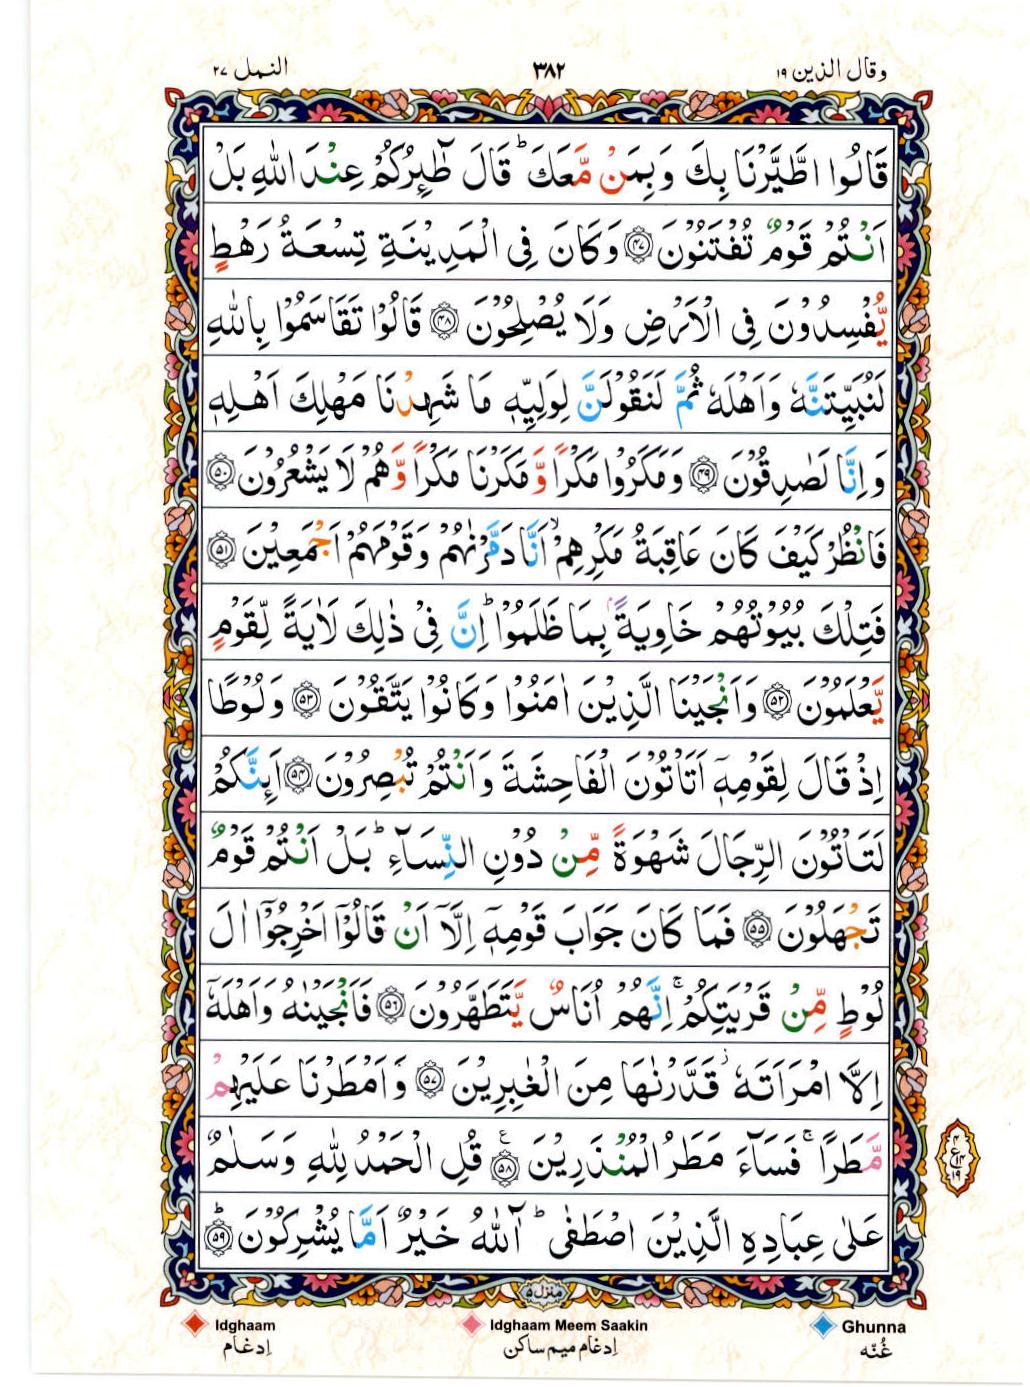 وقال الذين ١٩
٣٨٢
النمل ٢٧
قَالُوا اطَّيَّرْنَا بِكَ وَبِمَنْ مَّعَكَ ؕ قَالَ طٰٓئِرُكُمْ عِنْدَ اللّٰهِ بَلْ
اَنْتُمْ قَوْمٌ تُفْتَنُوْنَ ﴿۴۷﴾ وَكَانَ فِى الْمَدِيْنَةِ تِسْعَةُ رَهْطٍ
يُّفْسِدُوْنَ فِى الْاَرْضِ وَلَا يُصْلِحُوْنَ ﴿۴۸﴾ قَالُوْا تَقَاسَمُوْا بِاللّٰهِ
لَنُبَيِّتَنَّهٗ وَاَهْلَهٗ ثُمَّ لَنَقُوْلَنَّ لِوَلِيِّهٖ مَا شَهِدْنَا مَهْلِكَ اَهْلِهٖ
وَاِنَّا لَصٰدِقُوْنَ ﴿۴۹﴾ وَمَكَرُوْا مَكْرًا وَّمَكَرْنَا مَكْرًا وَّهُمْ لَا يَشْعُرُوْنَ ﴿۵۰﴾
فَانْظُرْ كَيْفَ كَانَ عَاقِبَةُ مَكْرِهِمْ ۙ اَنَّا دَمَّرْنٰهُمْ وَقَوْمَهُمْ اَجْمَعِيْنَ ﴿۵۱﴾
فَتِلْكَ بُيُوْتُهُمْ خَاوِيَةًۢ بِمَا ظَلَمُوْا ؕ اِنَّ فِىْ ذٰلِكَ لَاٰيَةً لِّقَوْمٍ
يَّعْلَمُوْنَ ﴿۵۲﴾ وَاَنْجَيْنَا الَّذِيْنَ اٰمَنُوْا وَكَانُوْا يَتَّقُوْنَ ﴿۵۳﴾ وَلُوْطًا
اِذْ قَالَ لِقَوْمِهٖۤ اَتَاْتُوْنَ الْفَاحِشَةَ وَاَنْتُمْ تُبْصِرُوْنَ ﴿۵۴﴾ اَئِنَّكُمْ
لَتَاْتُوْنَ الرِّجَالَ شَهْوَةً مِّنْ دُوْنِ النِّسَآءِ ؕ بَلْ اَنْتُمْ قَوْمٌ
تَجْهَلُوْنَ ﴿۵۵﴾ فَمَا كَانَ جَوَابَ قَوْمِهٖۤ اِلَّاۤ اَنْ قَالُوْۤا اَخْرِجُوْۤا اٰلَ
لُوْطٍ مِّنْ قَرْيَتِكُمْ ۚ اِنَّهُمْ اُنَاسٌ يَّتَطَهَّرُوْنَ ﴿۵۶﴾ فَاَنْجَيْنٰهُ وَاَهْلَهٗۤ
اِلَّا امْرَاَتَهٗ ؗ قَدَّرْنٰهَا مِنَ الْغٰبِرِيْنَ ﴿۵۷﴾ وَاَمْطَرْنَا عَلَيْهِمْ
مَّطَرًا ۚ فَسَآءَ مَطَرُ الْمُنْذَرِيْنَ ﴿۵۸﴾ ع قُلِ الْحَمْدُ لِلّٰهِ وَسَلٰمٌ
عَلٰى عِبَادِهِ الَّذِيْنَ اصْطَفٰى ؕ آٰللّٰهُ خَيْرٌ اَمَّا يُشْرِكُوْنَ ﴿۵۹﴾ ؕ
منزل ۵
Idghaam
Idghaam Meem Saakin
Ghunna
إدغام
إدغام ميم ساكن
غُنّه